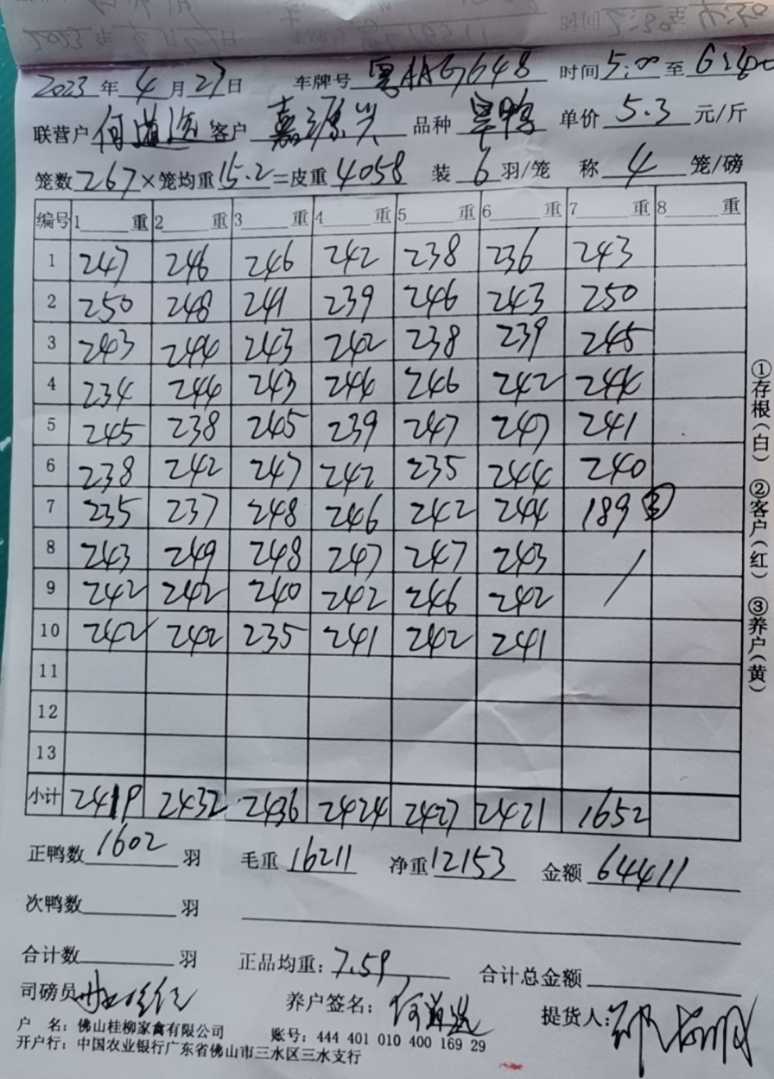 2023年4月27日 车牌号 粤AAG7648 时间5:00至6:40
联营户 何道 客户 嘉源兴 品种 旱鸭 单价 5.3 元/斤
笼数267×笼均重15.2=皮重4058 装 6 羽/笼 称 4 笼/磅
编号 1 重 2 重 3 重 4 重 5 重 6 重 7 重 8 重
1 247 246 246 242 238 236 243
2 250 248 241 239 246 243 250
3 243 244 243 242 238 239 245
4 234 244 243 244 246 242 244
5 245 238 245 239 247 247 241
6 238 242 247 242 235 244 240
7 235 237 248 246 242 244 189 ③
8 243 249 248 247 247 243 /
9 242 242 240 242 246 242
10 242 242 235 241 242 241
11
12
13
小计 2419 2432 2436 2424 2427 2421 1652
正鸭数 1602 羽 毛重 16211 净重 12153 金额 64411
次鸭数 羽
合计数 羽 正品均重：7.59 合计总金额
司磅员 养户签名： 何道 提货人：
户 名：佛山桂柳家禽有限公司 账号：444 401 010 400 169 29
开户行：中国农业银行广东省佛山市三水区三水支行
①存根（白） ②客户（红） ③养户（黄）